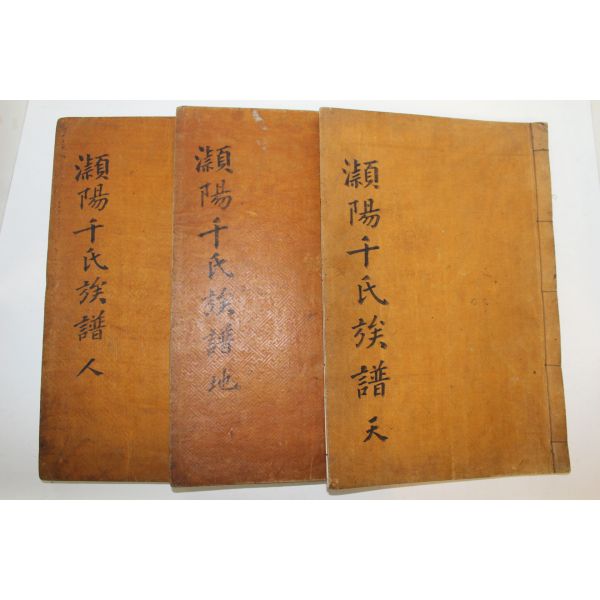 灝陽千氏族譜 天
灝陽千氏族譜 地
灝陽千氏族譜 人